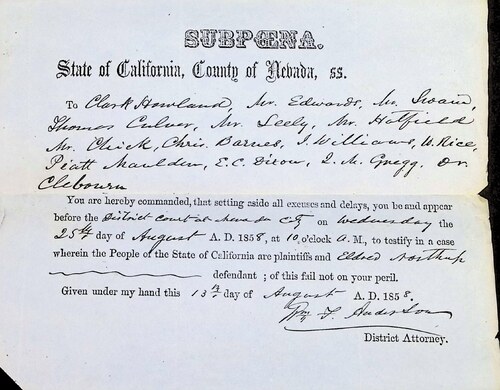 SUBPŒNA.
State of California, County of Nevada, ss.
To Clark Howland, Mr. Edwards, Mr. Swain,
Thomas Culver, Mr. Seely, Mr. Hatfield
Mr. Chick, Chris. Barnes, J. Williams, W. Rice,
Piatt Maulden, E. C. Dixon, I. M. Gregg. Dr.
Clebourn
You are hereby commanded, that setting aside all excuses and delays, you be and appear
before the District Court at Nevada City on Wednesday the
25th day of August A. D. 1858, at 10 o'clock A. M., to testify in a case
wherein the People of the State of California are plaintiffs and Eldred Northup
defendant ; of this fail not on your peril.
Given under my hand this 13th day of August A. D. 1858.
Wm F. Anderson
District Attorney.